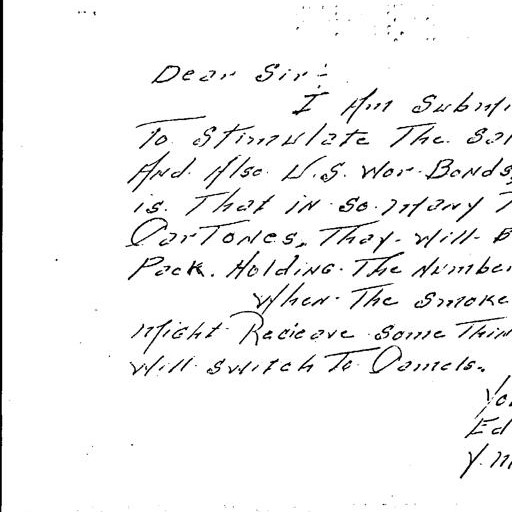 Dear Sir:-
I Am Submi
To Stimulate The Sal
And Also U.S. War Bonds,
is. That in so many
CarTones, Thay will B
Pack. Holding The Number
When The Smoke
Might Recieave Some Thin
Will Switch To Camels.
You
Ed
Y.M